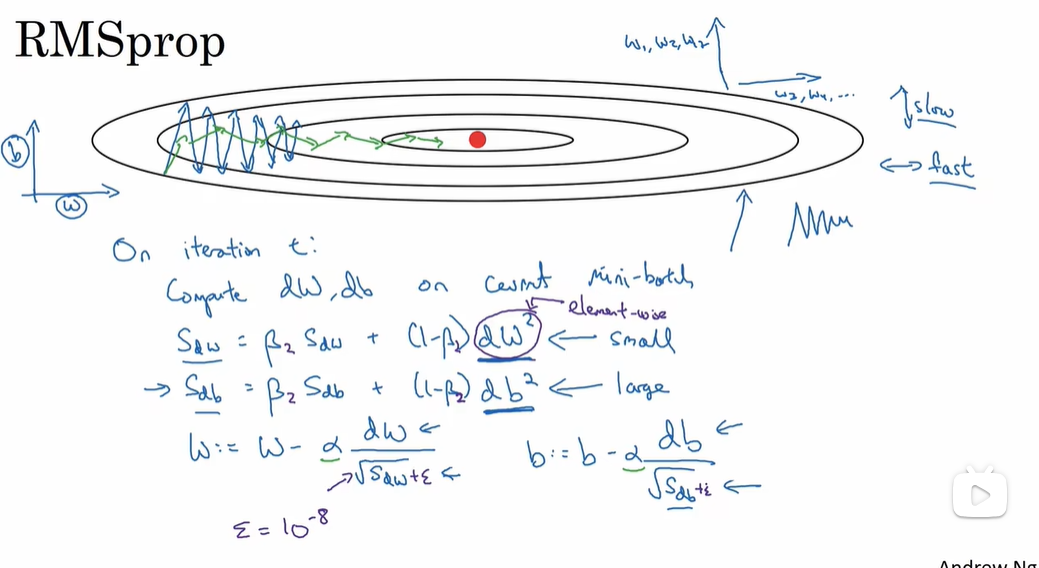 RMSprop
w₁, w₂, w₂
w₃, w₄, ...
slow
fast
b
w
On iteration t:
Compute dW, db on current mini-batch
element-wise
S_dw = β₂ S_dw + (1-β₂) dW² ← small
→ S_db = β₂ S_db + (1-β₂) db² ← large
w := w - α dw / √S_dw + ε ←
b := b - α db / √S_db + ε ←
ε = 10⁻⁸
Andrew Ng